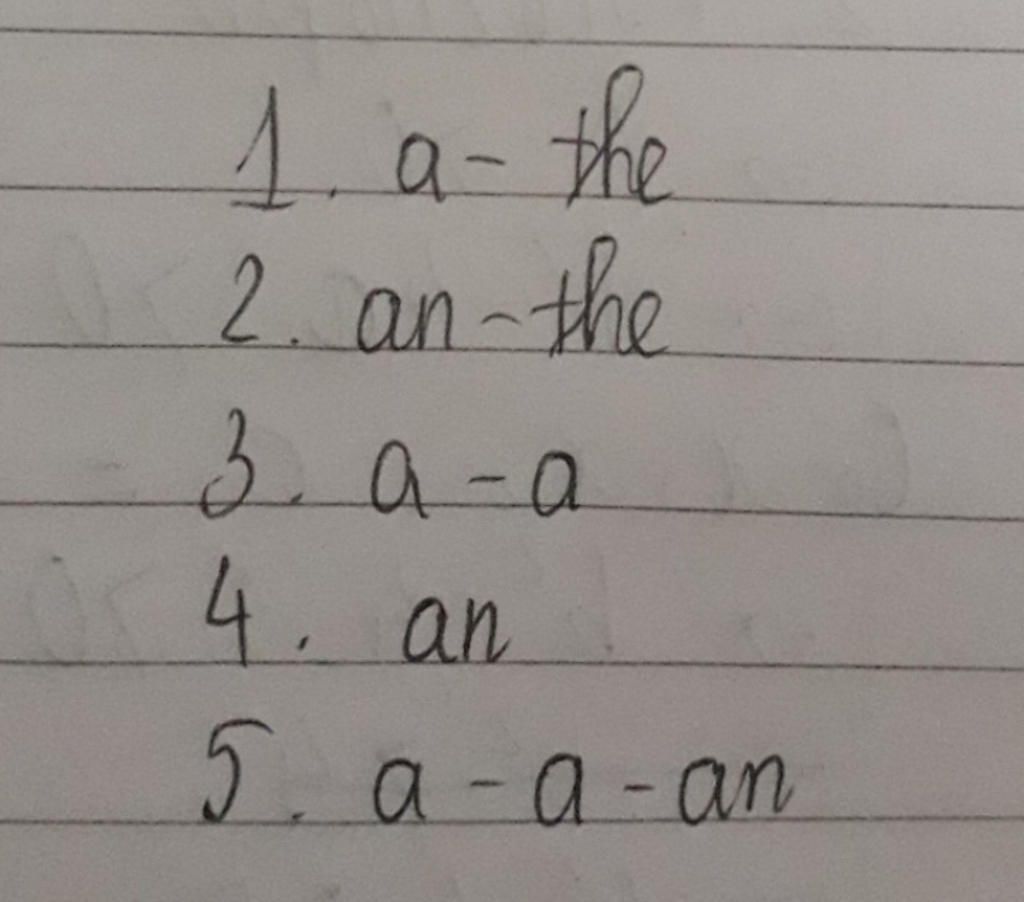 1. a - the
2. an - the
3. a - a
4. an
5. a - a - an